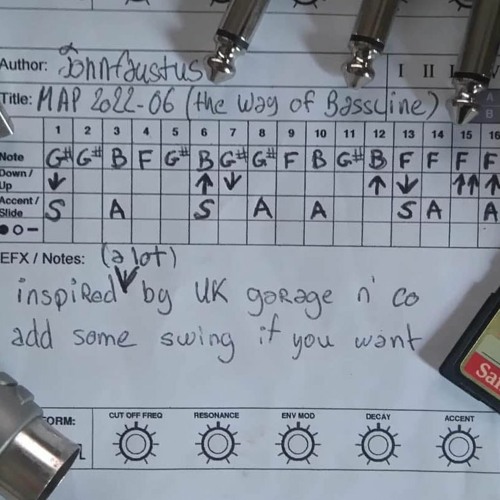 Author: Jonnfaustus I II I V
Title: MAP 2022-06 (the way of Bassline) A
B
1 2 3 4 5 6 7 8 9 10 11 12 13 14 15 16
Note G# G# B F G# B G# G# F B G# B F F F F
Down / Up ↓ ↑ ↓ ↑ ↓ ↑↑ ↑
Accent / Slide S A S A A S A A
● ○ –
EFX / Notes: (a lot)
inspired by UK garage n' co
add some swing if you want
San
ORM: CUT OFF FREQ RESONANCE ENV MOD DECAY ACCENT
L